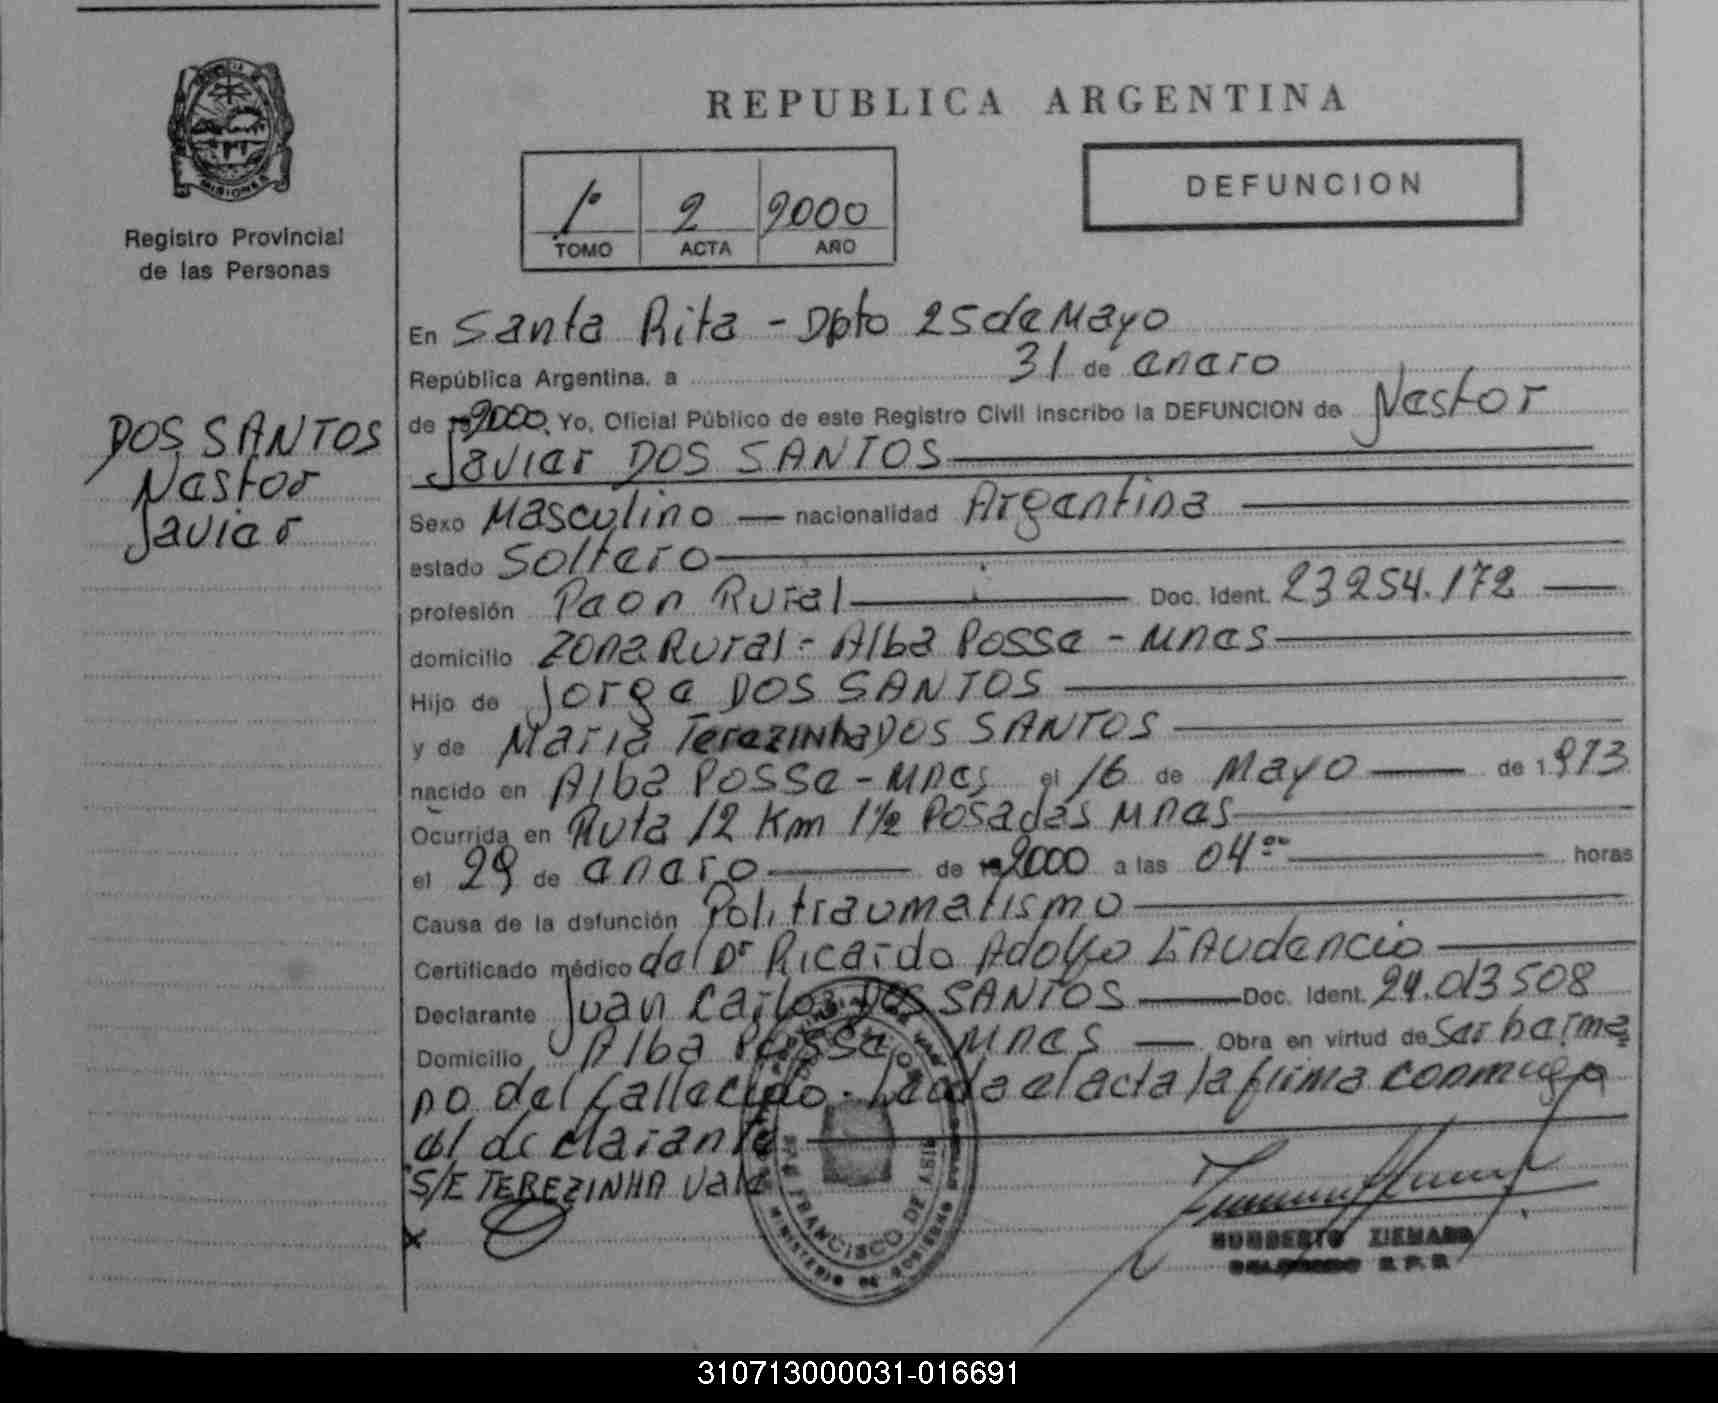 MISIONES
Registro Provincial
de las Personas
DOS SANTOS
Nestor
Javier
REPUBLICA ARGENTINA
1º 2 2000
TOMO ACTA AÑO
DEFUNCION
En Santa Rita - Dpto 25 de Mayo
República Argentina, a 31 de enero
de 2000. Yo, Oficial Público de este Registro Civil inscribo la DEFUNCION de Nestor
Javier DOS SANTOS
Sexo Masculino nacionalidad Argentina
estado Soltero
profesión Peon Rural Doc. Ident. 23254.172
domicilio Zona Rural - Alba Posse - Mnes
Hijo de Jorge DOS SANTOS
y de Maria TEREZINHA DOS SANTOS
nacido en Alba Posse - Mnes el 16 de Mayo de 1.973
Ocurrida en Ruta 12 Km 1½ Posadas Mnes
el 29 de enero de 2000 a las 04ºº horas
Causa de la defunción Politraumatismo
Certificado médico del Dr Ricardo Adolfo
Declarante Juan Carlos DOS SANTOS Doc. Ident. 24.013508
Domicilio Alba Posse Mnes Obra en virtud de Ser herma
no del fallecido. Leida el acta la firma conmigo
el declarante
S/E TEREZINHA Vale
FRANCISCO DE ASIS
MINISTERIO DE GOBIERNO
310713000031-016691